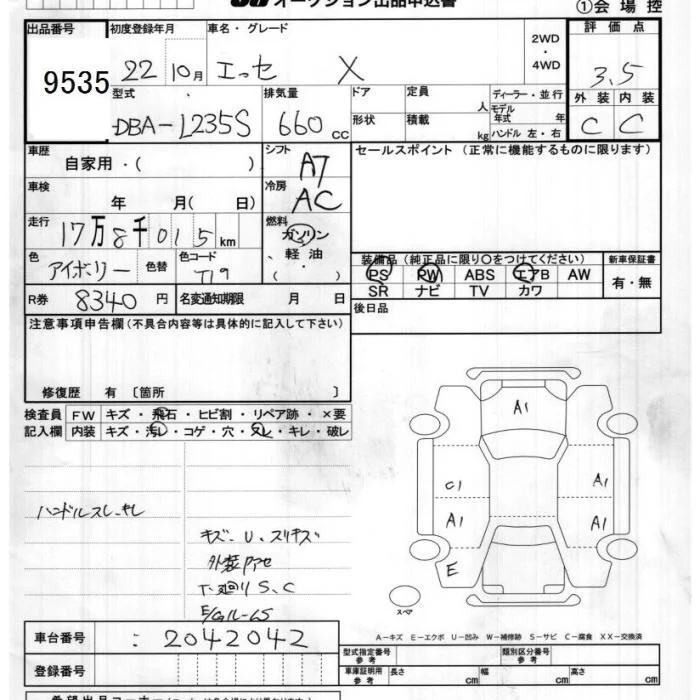 オークション出品申込書 ①会場控
出品番号 初度登録年月 車名・グレード 2WD・4WD 評価点
9535 22 10月 エッセ X 3.5
型式 排気量 ドア 定員 人 ディーラー・並行 外装 内装
DBA-L235S 660cc 形状 積載 kg モデル年式 年 ハンドル 左・右 C C
車歴 シフト セールスポイント（正常に機能するものに限ります）
自家用・（ ） A7
車検 冷房
年 月（ 日） AC
走行 燃料
17万8千015km ガソリン・軽油・（ ）
色 色替 色コード 装備品（純正品に限り○をつけてください） 新車保証書
アイボリー T19 PS PW ABS エアB AW 有・無
SR ナビ TV カワ
R券 8340円 名変通知期限 月 日 後日品
注意事項申告欄（不具合内容等は具体的に記入して下さい）
修復歴 有 〔箇所 〕
検査員 FW キズ・飛石・ヒビ割・リペア跡・×要
記入欄 内装 キズ・汚レ・コゲ・穴・スレ・キレ・破レ
A1
C1 A1
A1 A1
E
スペア
ハンドルスレ・キレ
キズ・U・スリキズ
外装
下廻りS、C
A－キズ E－エクボ U－凹み W－補修跡 S－サビ C－腐食 XX－交換済
車台番号 : 2042042
登録番号
型式指定番号 参考 類別区分番号 参考
車庫証明用 参考 長さ cm 幅 cm 高さ cm
希望出品コーナー